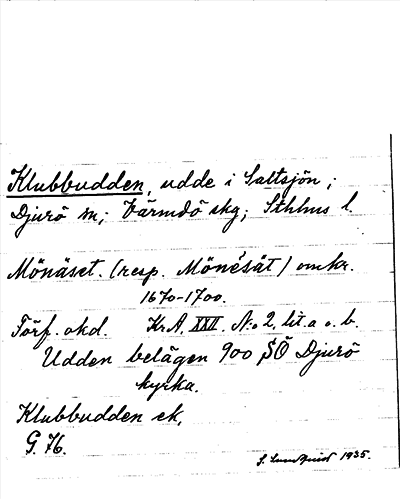 Klubbudden, udde i Saltsjön;
Djurö sn; Värmdö skg; Sthlms l.
Mönäset. (resp. Mönēsät) omkr.
1670-1700.
Förf. okd. Kr.A. XXII. N:o 2, lit. a o. b.
Udden belägen 900 SÖ Djurö
kyrka.
Klubbudden ek,
G. 76.
S. Lundquist 1935.